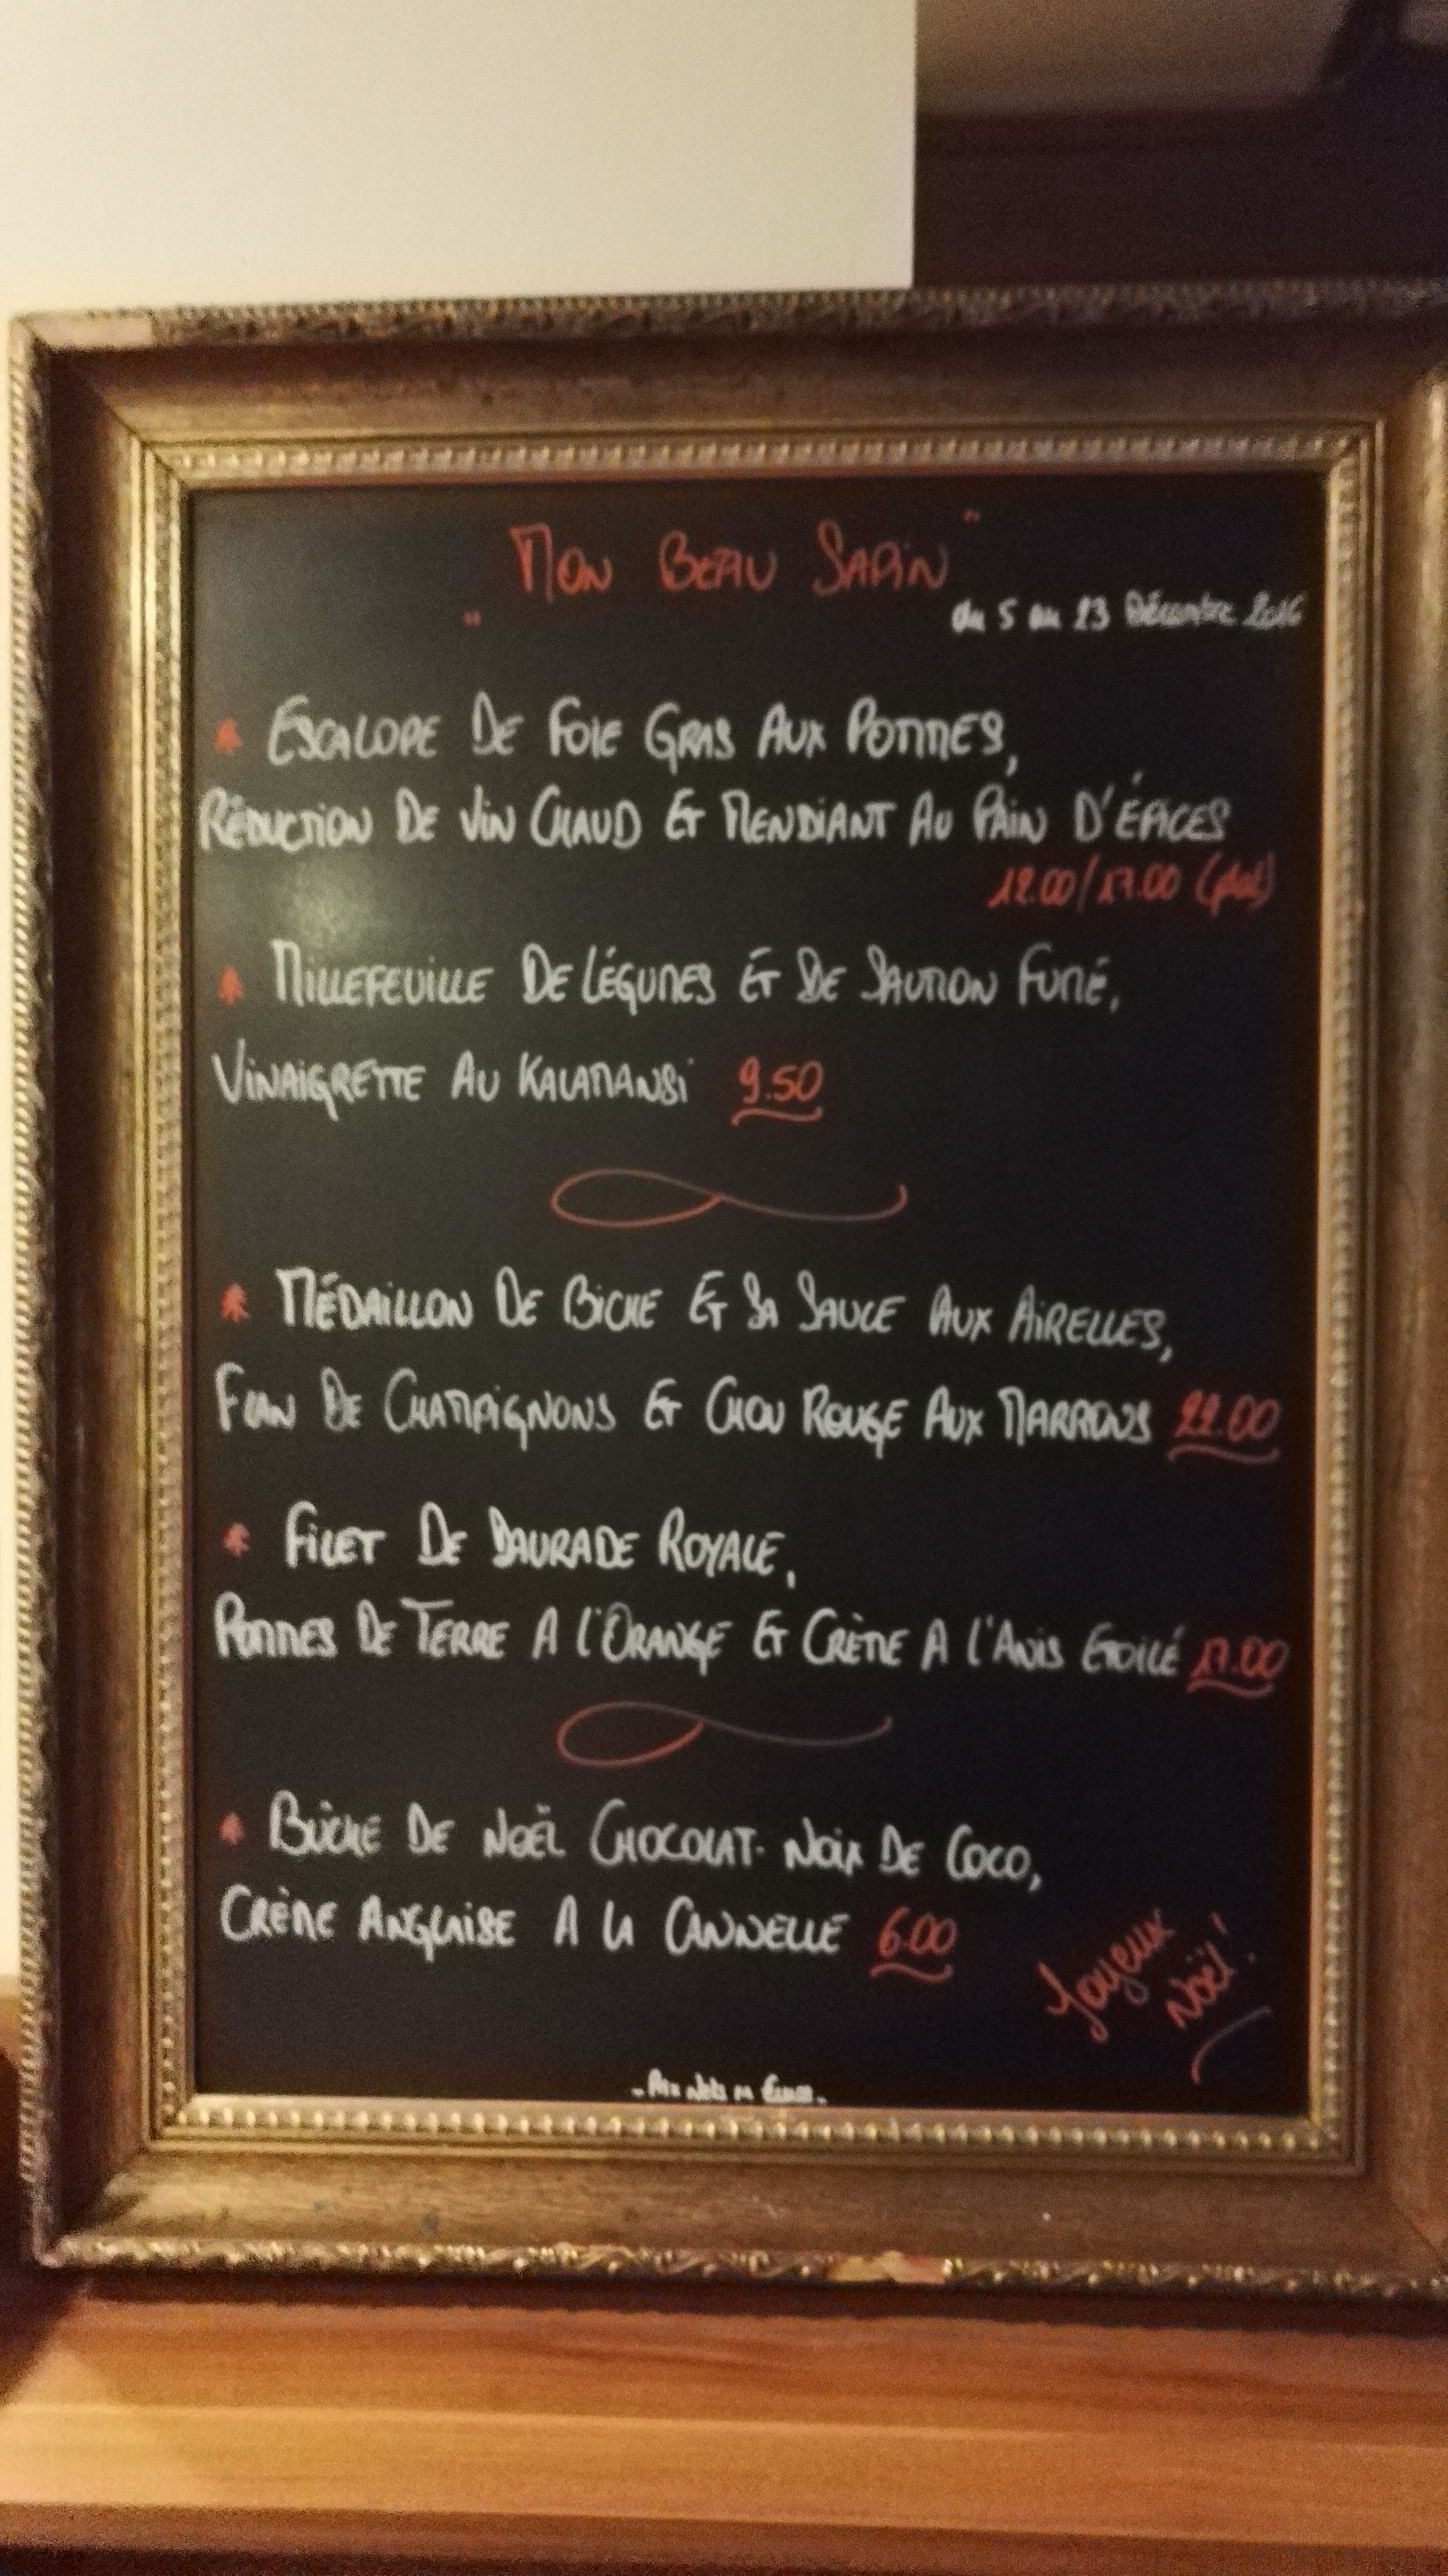 "Mon Beau Sapin"
du 5 au 23 Décembre 2016
Escalope De Foie Gras Aux Pommes,
Réduction De Vin Chaud Et Mendiant Au Pain D'Épices
12.00/17.00 (plat)
Millefeuille De Légumes Et De Saumon Fumé,
Vinaigrette Au Kalamansi 9.50
Médaillon De Biche Et Sa Sauce Aux Airelles,
Flan De Champignons Et Chou Rouge Aux Marrons 22.00
Filet De Daurade Royale,
Pommes De Terre A l'Orange Et Crème A l'Anis Etoilé 17.00
Bûche De Noël Chocolat-Noix De Coco,
Crème Anglaise A La Cannelle 6.00
Joyeux
Noël!
- Prix Nets en Euros -